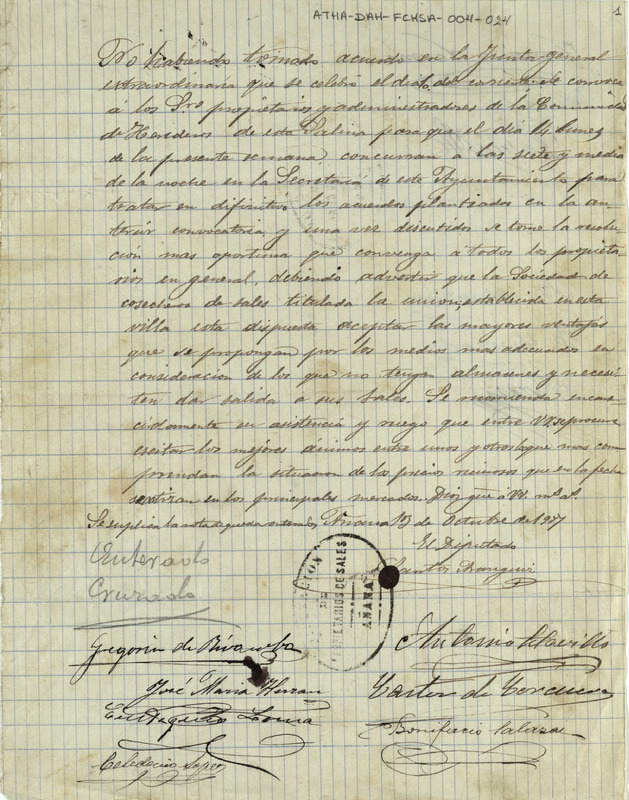 ATHA-DAH-FCHSA-004-024
1
No habiendo tomado acuerdo en la Junta general
extraordinaria que se celebró el dia 6 del corriente se convoca
á los Sres propietarios y administradores de la Comunidad
de Herederos de esta Salina para que el dia 14 Lunes
de la presente semana, concurran á las siete y media
de la noche en la Secretaría de este Ayuntamiento para
tratar en difinitiva los acuerdos plantiados en la an-
terior convocatoria y una vez discutidos se tome la resolu-
ción mas oportuna que convenga á todos los propieta-
rios en general, debiendo advertir que la Sociedad de
cosecheros de sales titulada la union, establecida en esta
villa esta dispuesta aceptar las mayores ventajas
que se propongan por los medios mas adecuados en
consideracion de los que no tengan almacenes y necesi-
ten dar salida a sus sales. Se recomienda encare-
cidamente su asistencia y ruego que entre VV. se procure
escitar los mejores ánimos entre unos y otros que mas com
prendan la situacion de los precios ruinosos que en la fecha
se cotizan en los principales mercados. Dios gue á VV. m.s a.s
Se suplica la nota de quedar enterados, Añana 13 de Octubre de 1907
El Diputado
Santos
Enterado
Cruzado
PROPIETARIOS DE SALES
AÑANA
Gregorio de
Antonio
José Maria Herran
Castor de Corcuera
Eustaquio
Bonifacio Salazar
Celedonio Lopez